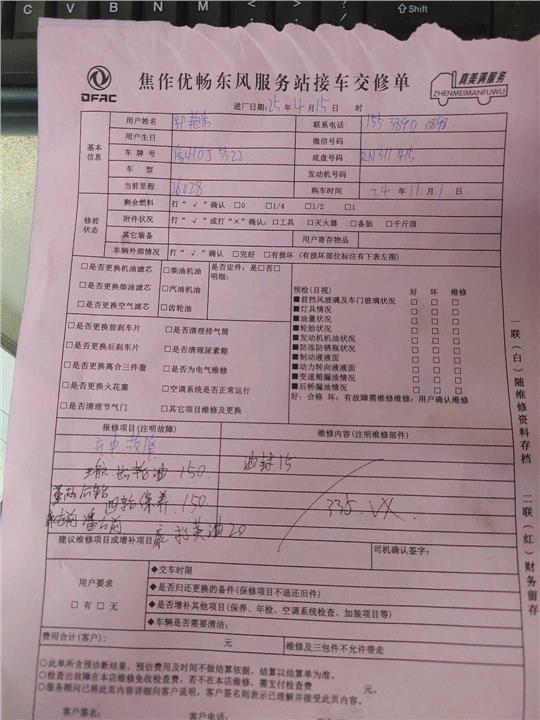 C V B N M
⇧Shift
DFAC
焦作优畅东风服务站接车交修单
真美满服务
ZHENMEIMANFUWU
进厂日期:25年4月15日 时
基本信息
用户姓名
联系电话
用户生日
微信号码
车牌号
底盘号码
车型
发动机号码
当前里程 26028
购车时间 24年11月1日
修前状态
剩余燃料 打“√”确认 □0 □1/4 □1/2 □1
附件状况 打“√”或打“×”确认:□工具 □灭火器 □备胎 □千斤顶
其它装备
用户寄存物品
车辆外部情况 打“√”确认 □完好 □有损坏(有损坏部位标注有下表左图)
□是否更换机油滤芯 □柴油机油 是否定件:是□否□
明细:
□是否更换柴油滤芯 □汽油机油
□是否更换空气滤芯 □齿轮油
预检(目视) 好 坏 维修
■前挡风玻璃及车门玻璃状况 □ □ □
■灯具情况 □ □ □
■油量状况 □ □ □
■轮胎状况 □ □ □
■发动机机油情况 □ □ □
■防冻防锈瓶状况 □ □ □
■制动液液面 □ □ □
■动力转向液液面 □ □ □
■变速箱漏油情况 □ □ □
■后桥漏油情况 □ □ □
好:合格 坏:有故障需维修维修:用户确认维修
□是否更换前刹车片 □是否清理排气筒
□是否更换后刹车片 □是否清理尿素箱
□是否更换离合三件套 □是否为电气维修
□是否更换火花塞 □空调系统是否正常运行
□是否清理节气门 □其它项目维修及更换
报修项目(注明故障)
维修内容(注明维修部件)
齿轮油 150
油封15
四轮保养.150
335.VX
打黄油20
建议维修项目或增补项目
司机确认签字:
用户要求
□有□无
◆交车时限
◆是否归还更换的备件(保修项目不退还旧件)
◆是否增补其他项目(保养、年检、空调系统检查、加装项目等)
◆车辆是否需要清洁:
费用合计(客户): 元
维修及三包件不允许带走
○此单所含预诊断结果,预估费用及时间不做结算依据,结算以结算单为准。
○检查出故障在本店维修免收检查费,若不在本店维修,需支付检查费 元。
○服务顾问已将此页内容详细向客户说明。客户签名则表示已理解并接受此页内容。
客户签名:
客户电话:
服务顾问签名:
一联(白)随维修资料存档
二联(红)财务留存